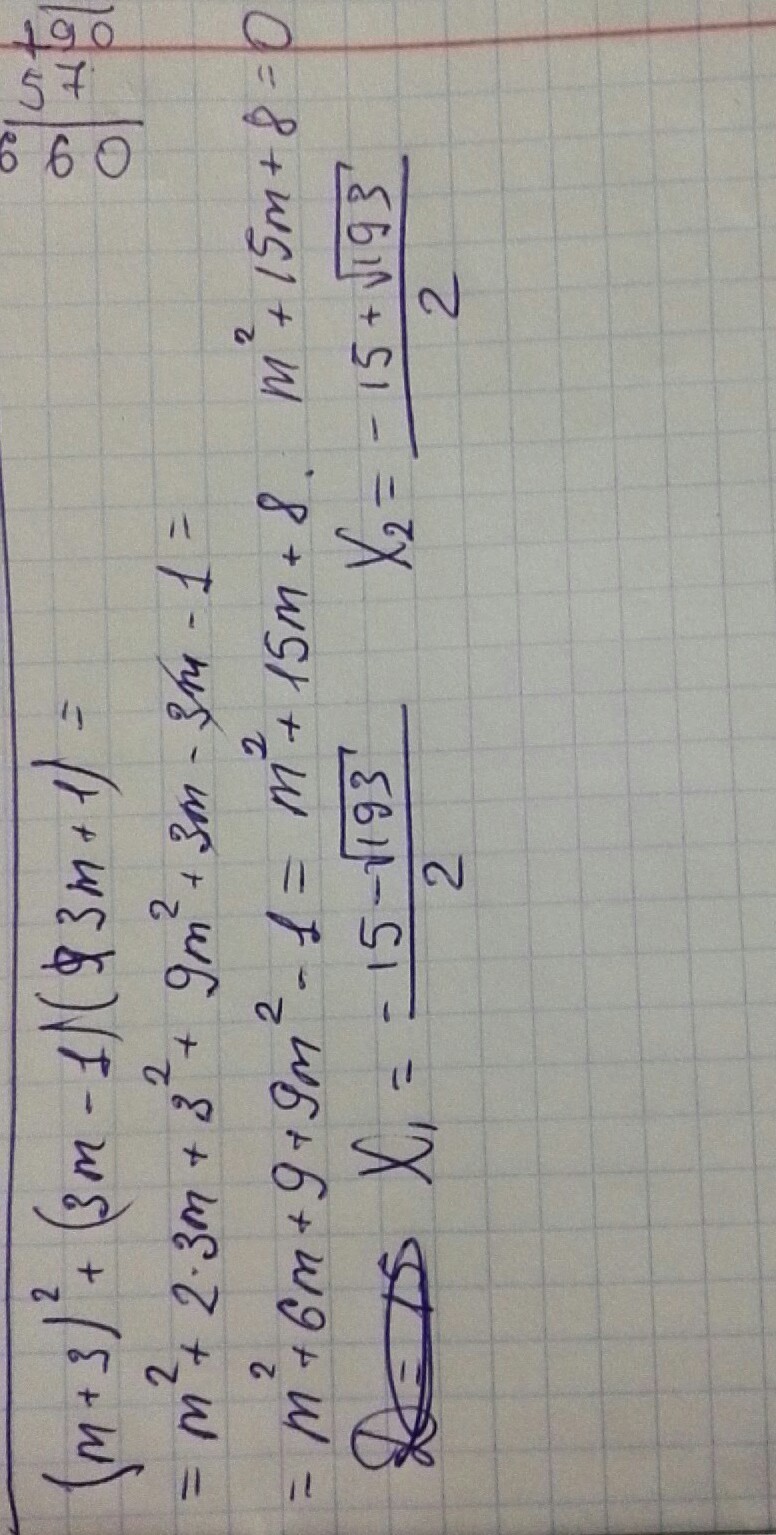 (m+3)² + (3m-1)(3m+1) =
= m² + 2·3m + 3² + 9m² + 3m - 3m - 1 =
= m² + 6m + 9 + 9m² - 1 = m² + 15m + 8. m² + 15m + 8 = 0
X₁ = (-15-√193)/2 X₂ = (-15+√193)/2